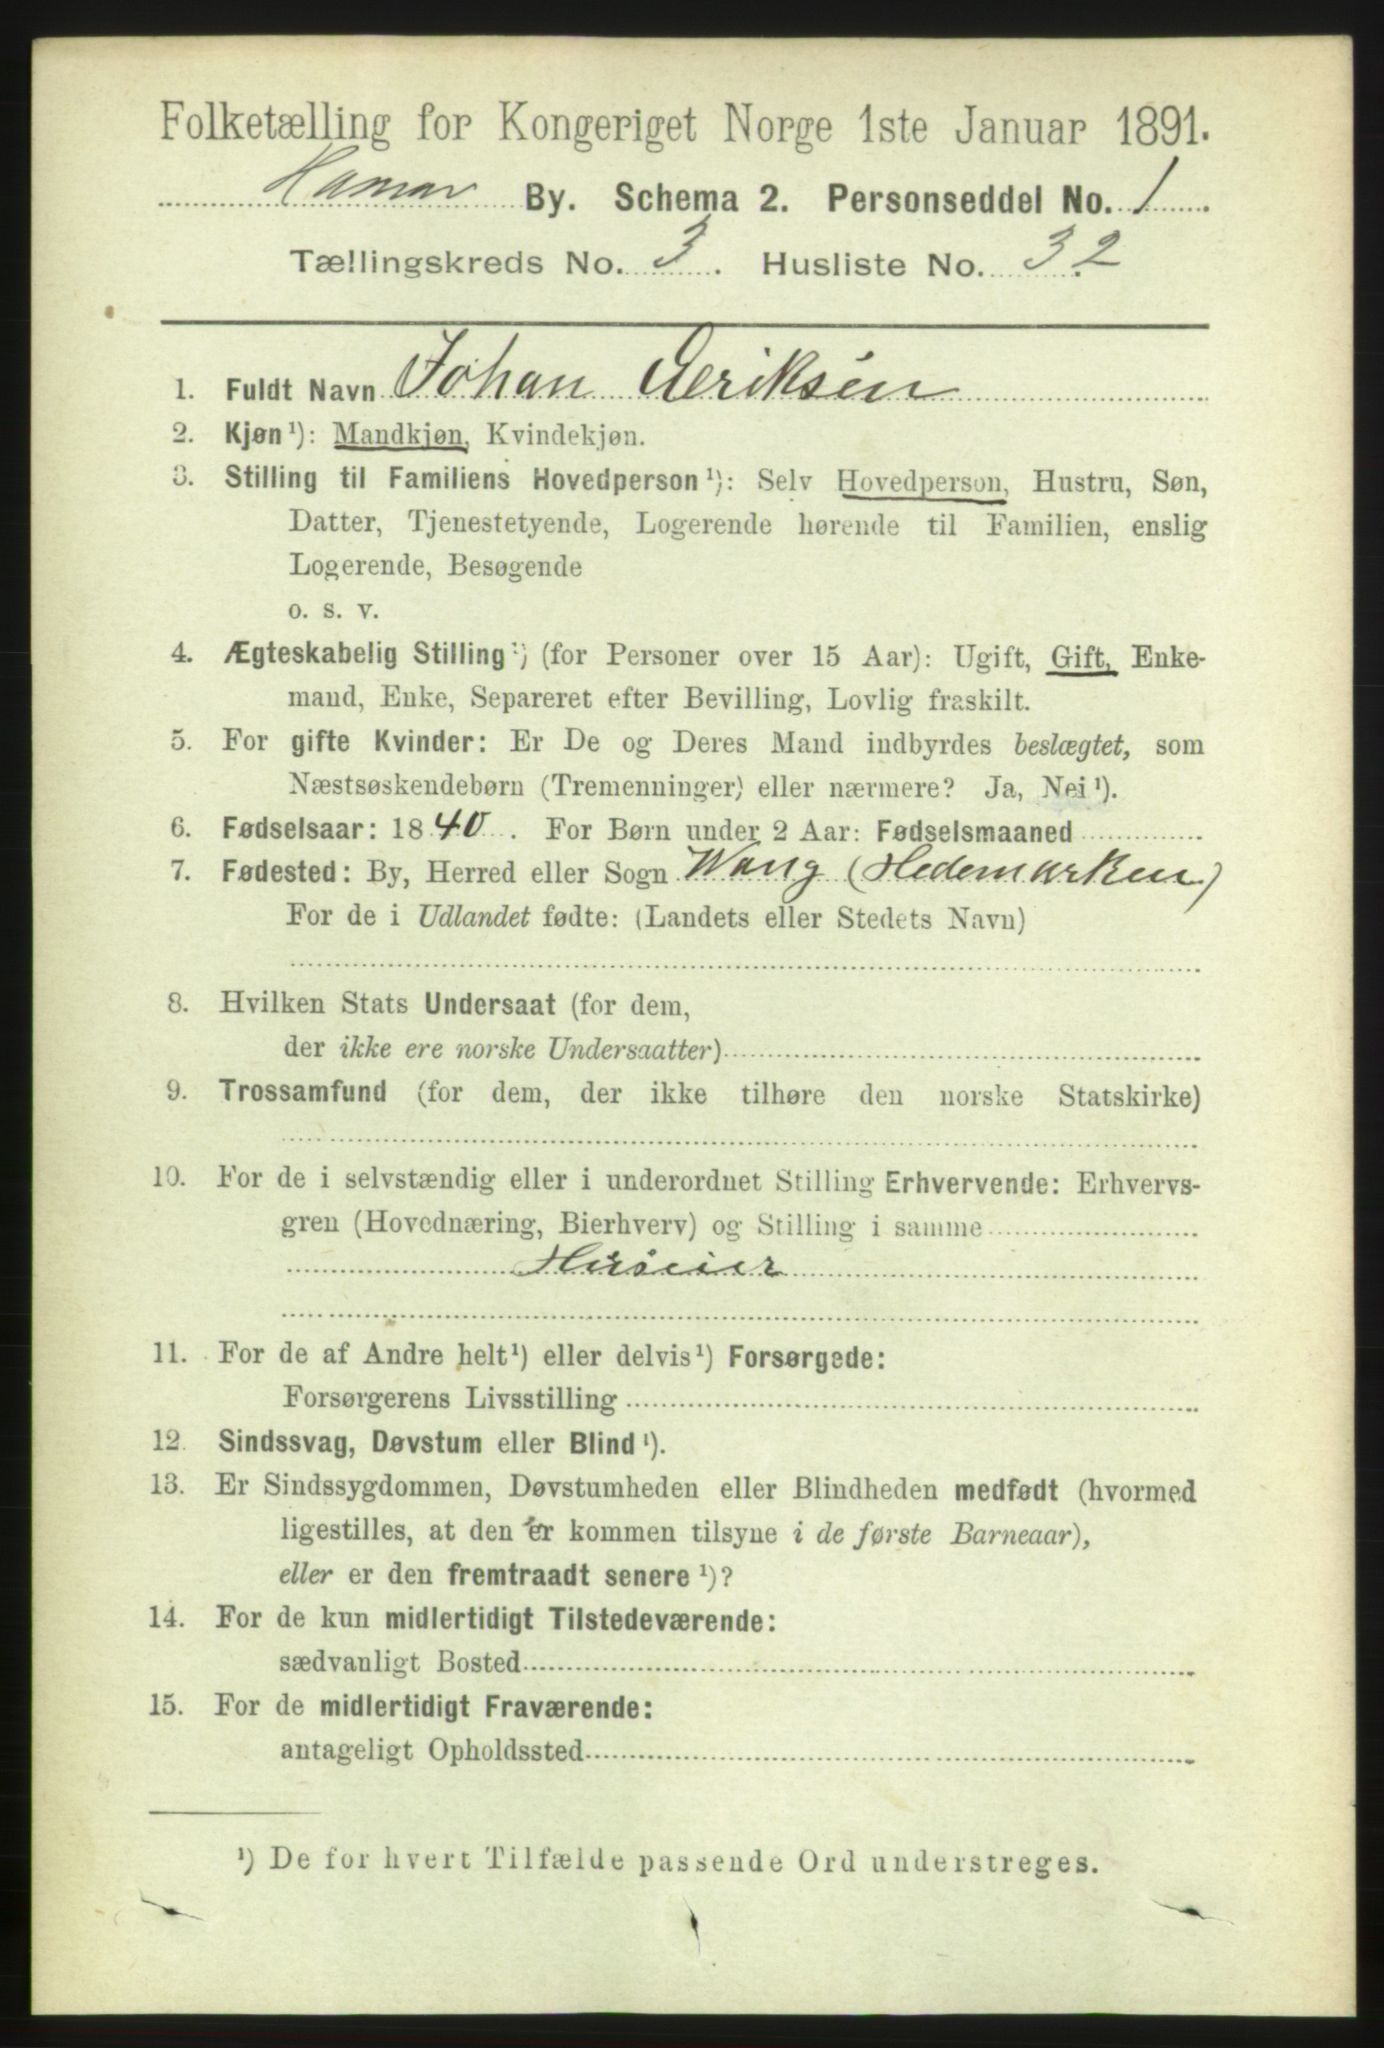 Folketælling for Kongeriget Norge 1ste Januar 1891.
Hamar By. Schema 2. Personseddel No. 1
Tællingskreds No. 3. Husliste No. 32
1. Fuldt Navn Johan Eriksen
2. Kjøn¹): Mandkjøn, Kvindekjøn.
3. Stilling til Familiens Hovedperson¹): Selv Hovedperson, Hustru, Søn,
Datter, Tjenestetyende, Logerende hørende til Familien, enslig
Logerende, Besøgende
o. s. v.
4. Ægteskabelig Stilling¹) (for Personer over 15 Aar): Ugift, Gift, Enke-
mand, Enke, Separeret efter Bevilling, Lovlig fraskilt.
5. For gifte Kvinder: Er De og Deres Mand indbyrdes beslægtet, som
Næstsøskendebørn (Tremenninger) eller nærmere? Ja, Nei¹).
6. Fødselsaar: 1840. For Børn under 2 Aar: Fødselsmaaned
7. Fødested: By, Herred eller Sogn Wang (Hedemarken)
For de i Udlandet fødte: (Landets eller Stedets Navn)
8. Hvilken Stats Undersaat (for dem,
der ikke ere norske Undersaatter)
9. Trossamfund (for dem, der ikke tilhøre den norske Statskirke)
10. For de i selvstændig eller i underordnet Stilling Erhvervende: Erhvervs-
gren (Hovednæring, Bierhverv) og Stilling i samme
Huseier
11. For de af Andre helt¹) eller delvis¹) Forsørgede:
Forsørgerens Livsstilling
12. Sindssvag, Døvstum eller Blind¹).
13. Er Sindssygdommen, Døvstumheden eller Blindheden medfødt (hvormed
ligestilles, at den er kommen tilsyne i de første Barneaar),
eller er den fremtraadt senere¹)?
14. For de kun midlertidigt Tilstedeværende:
sædvanligt Bosted
15. For de midlertidigt Fraværende:
antageligt Opholdssted
¹) De for hvert Tilfælde passende Ord understreges.